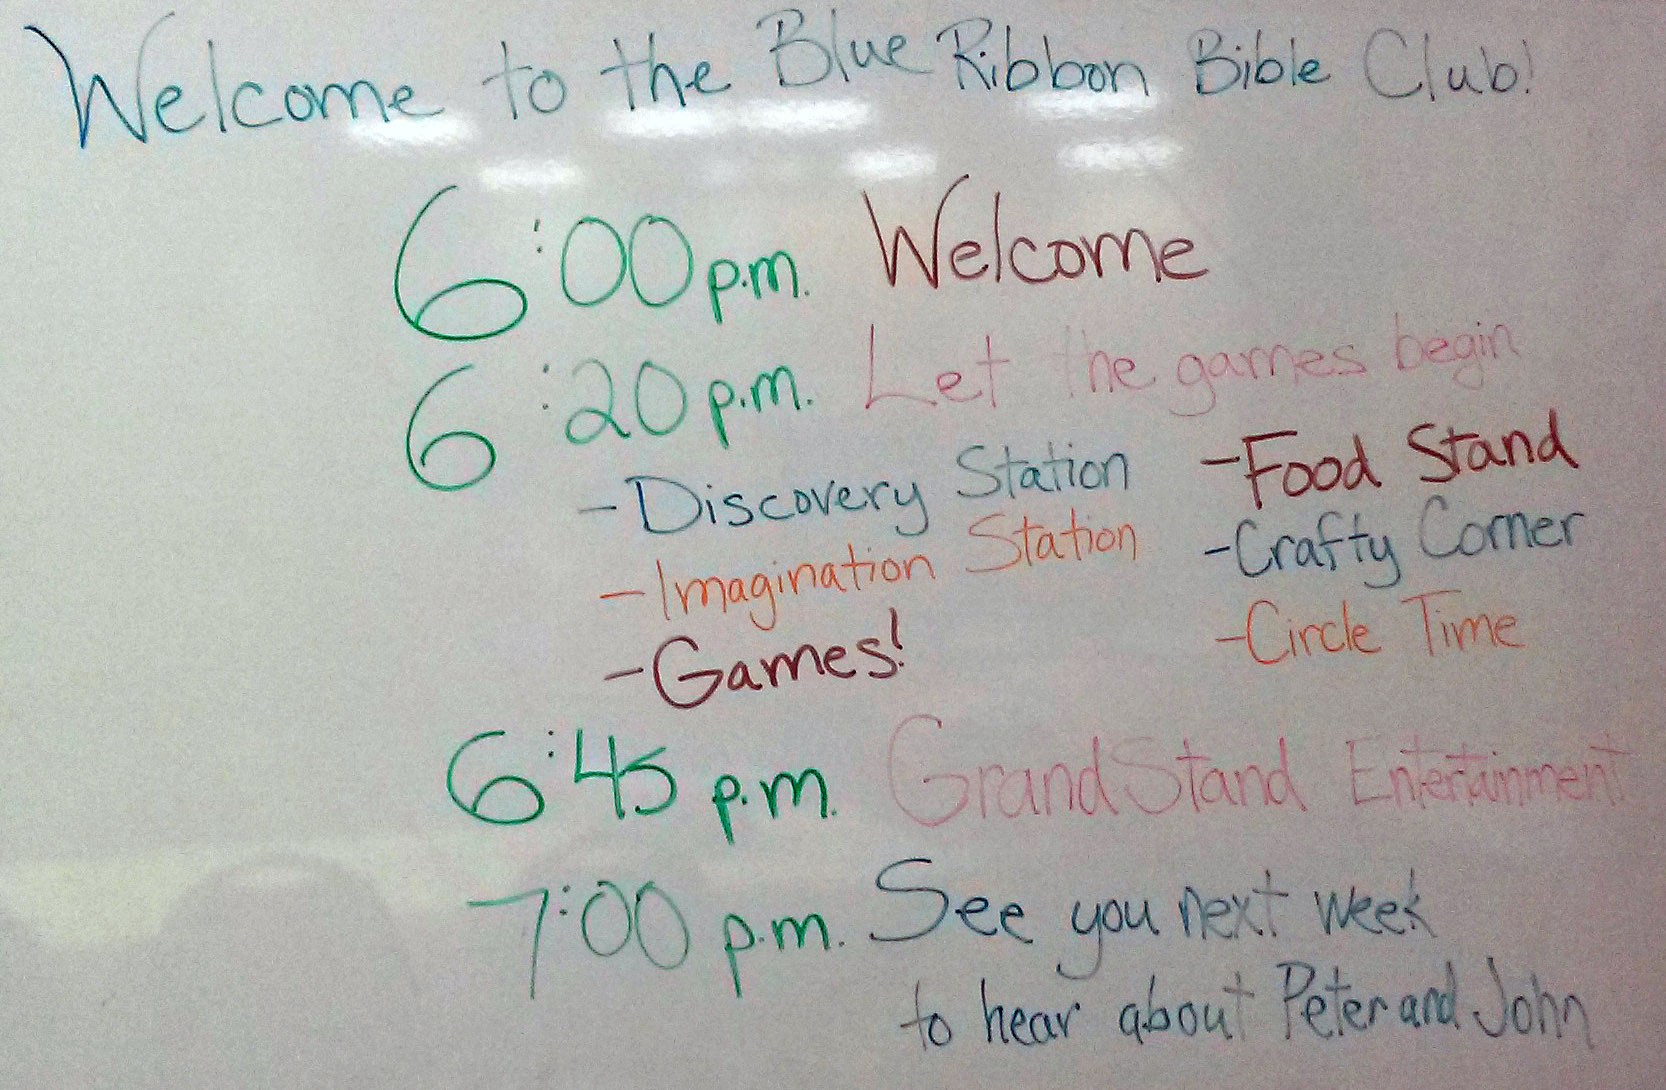 Welcome to the Blue Ribbon Bible Club!
6:00 p.m. Welcome
6:20 p.m. Let the games begin
- Discovery Station - Food Stand
- Imagination Station - Crafty Corner
- Games! - Circle Time
6:45 p.m. GrandStand Entertainment
7:00 p.m. See you next week
to hear about Peter and John